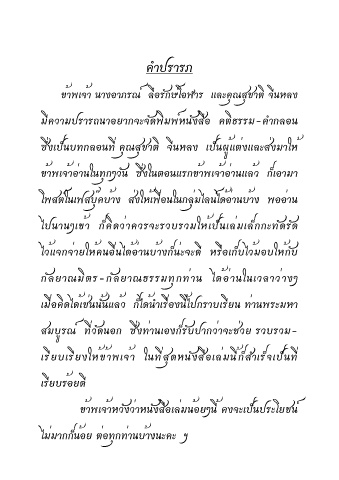 คำปรารภ
ข้าพเจ้า นางอาภรณ์ ลือรักษ์โอฬาร และคุณสุชาติ จีนหลง
มีความปรารถนาอยากจะจัดพิมพ์หนังสือ คติธรรม-คำกลอน
ซึ่งเป็นบทกลอนที่ คุณสุชาติ จีนหลง เป็นผู้แต่งและส่งมาให้
ข้าพเจ้าอ่านในทุกๆวัน ซึ่งในตอนแรกข้าพเจ้าอ่านแล้ว ก็เอามา
โพสต์ในเฟสบุ๊คบ้าง ส่งให้เพื่อนในกลุ่มไลน์ได้อ่านบ้าง พออ่าน
ไปนานๆเข้า ก็คิดว่าควรจะรวบรวมให้เป็นเล่มเล็กกะทัดรัด
ไว้แจกจ่ายให้คนอื่นได้อ่านบ้างก็น่าจะดี หรือเก็บไว้มอบให้กับ
กัลยาณมิตร-กัลยาณธรรมทุกท่าน ได้อ่านในเวลาว่างๆ
เมื่อคิดได้เช่นนั้นแล้ว ก็ได้นำเรื่องนี้ไปกราบเรียน ท่านพระมหา
สมบูรณ์ ที่วัดนอก ซึ่งท่านเองก็รับปากว่าจะช่วย รวบรวม-
เรียบเรียงให้ข้าพเจ้า ในที่สุดหนังสือเล่มนี้ก็สำเร็จเป็นที่
เรียบร้อยดี
ข้าพเจ้าหวังว่าหนังสือเล่มน้อยๆนี้ คงจะเป็นประโยชน์
ไม่มากก็น้อย ต่อทุกท่านบ้างนะคะ ฯ